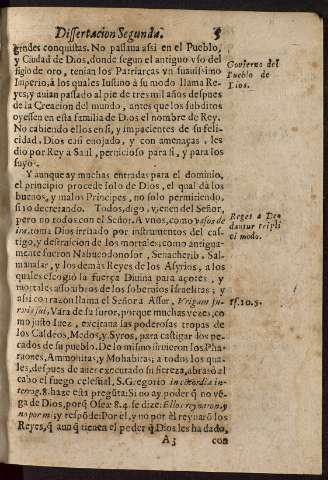 Dissertacion Segunda. 5
grandes conquistas. No passaua assi en el Pueblo,
y Ciudad de Dios, donde segun el antiguo vso del
siglo de oro, tenian los Patriarcas vn suauissimo
Imperio, à los quales Iustino à su modo llama Re-
yes; y auian passado al pie de tres mil años despues
de la Creacion del mundo, antes que los subditos
oyessen en esta familia de Dios el nombre de Rey.
No cabiendo ellos en si, y impacientes de su feli-
cidad, Dios casi enojado, y con amenaças, les
dio por Rey a Saul, pernicioso para si, y para los
suyos.
Y aunque ay muchas entradas para el dominio,
el principio procede solo de Dios, el qual dà los
buenos, y malos Principes, no solo permitiendo,
si ya decretando. Todos, digo, vienen del Señor,
pero no todos con el Señor. A vnos, como vasos de
ira, toma Dios irritado por instrumentos del cas-
tigo, y destruicion de los mortales; como antigua-
mente fueron Nabucodonosor, Senacherib, Sal-
manasar, y los demàs Reyes de los Asyrios, a los
quales escogiò la fuerça Diuina para açotes, y
mortales assombros de los soberuios Israelitas; y
assi con razon llama el Señor a Assur, Virgam fu-
roris sui, Vara de su furor, porque muchas vezes, co-
mo justo Iuez, excitaua las poderosas tropas de
los Caldeos, Medos, y Syros, para castigar los pe-
cados de su pueblo. De lo mismo siruieron los Pha-
raones, Ammonitas, y Mohabitas; a todos los qua-
les, despues de auer executado su fiereza, abrasò al
cabo el fuego celestial. S. Gregorio in
8. haze esta pregũta: Si no ay poder q̃ no vẽ-
ga de Dios, porq̃ Oseæ 8.4. se dize: Ellos reynaron, y
no por mi; y respõde: Por el, y no por èl reynarõ los
Reyes, q̃ aunq̃ tienen el poder q̃ Dios les ha dado,
A3 con
Gouierno del
Pueblo de
Dios.
Reges a Deo
dantur tripli
ci modo.
Is. 10.5.